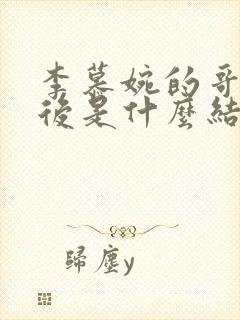 李慕婉的哥
後是什麼結
歸塵y